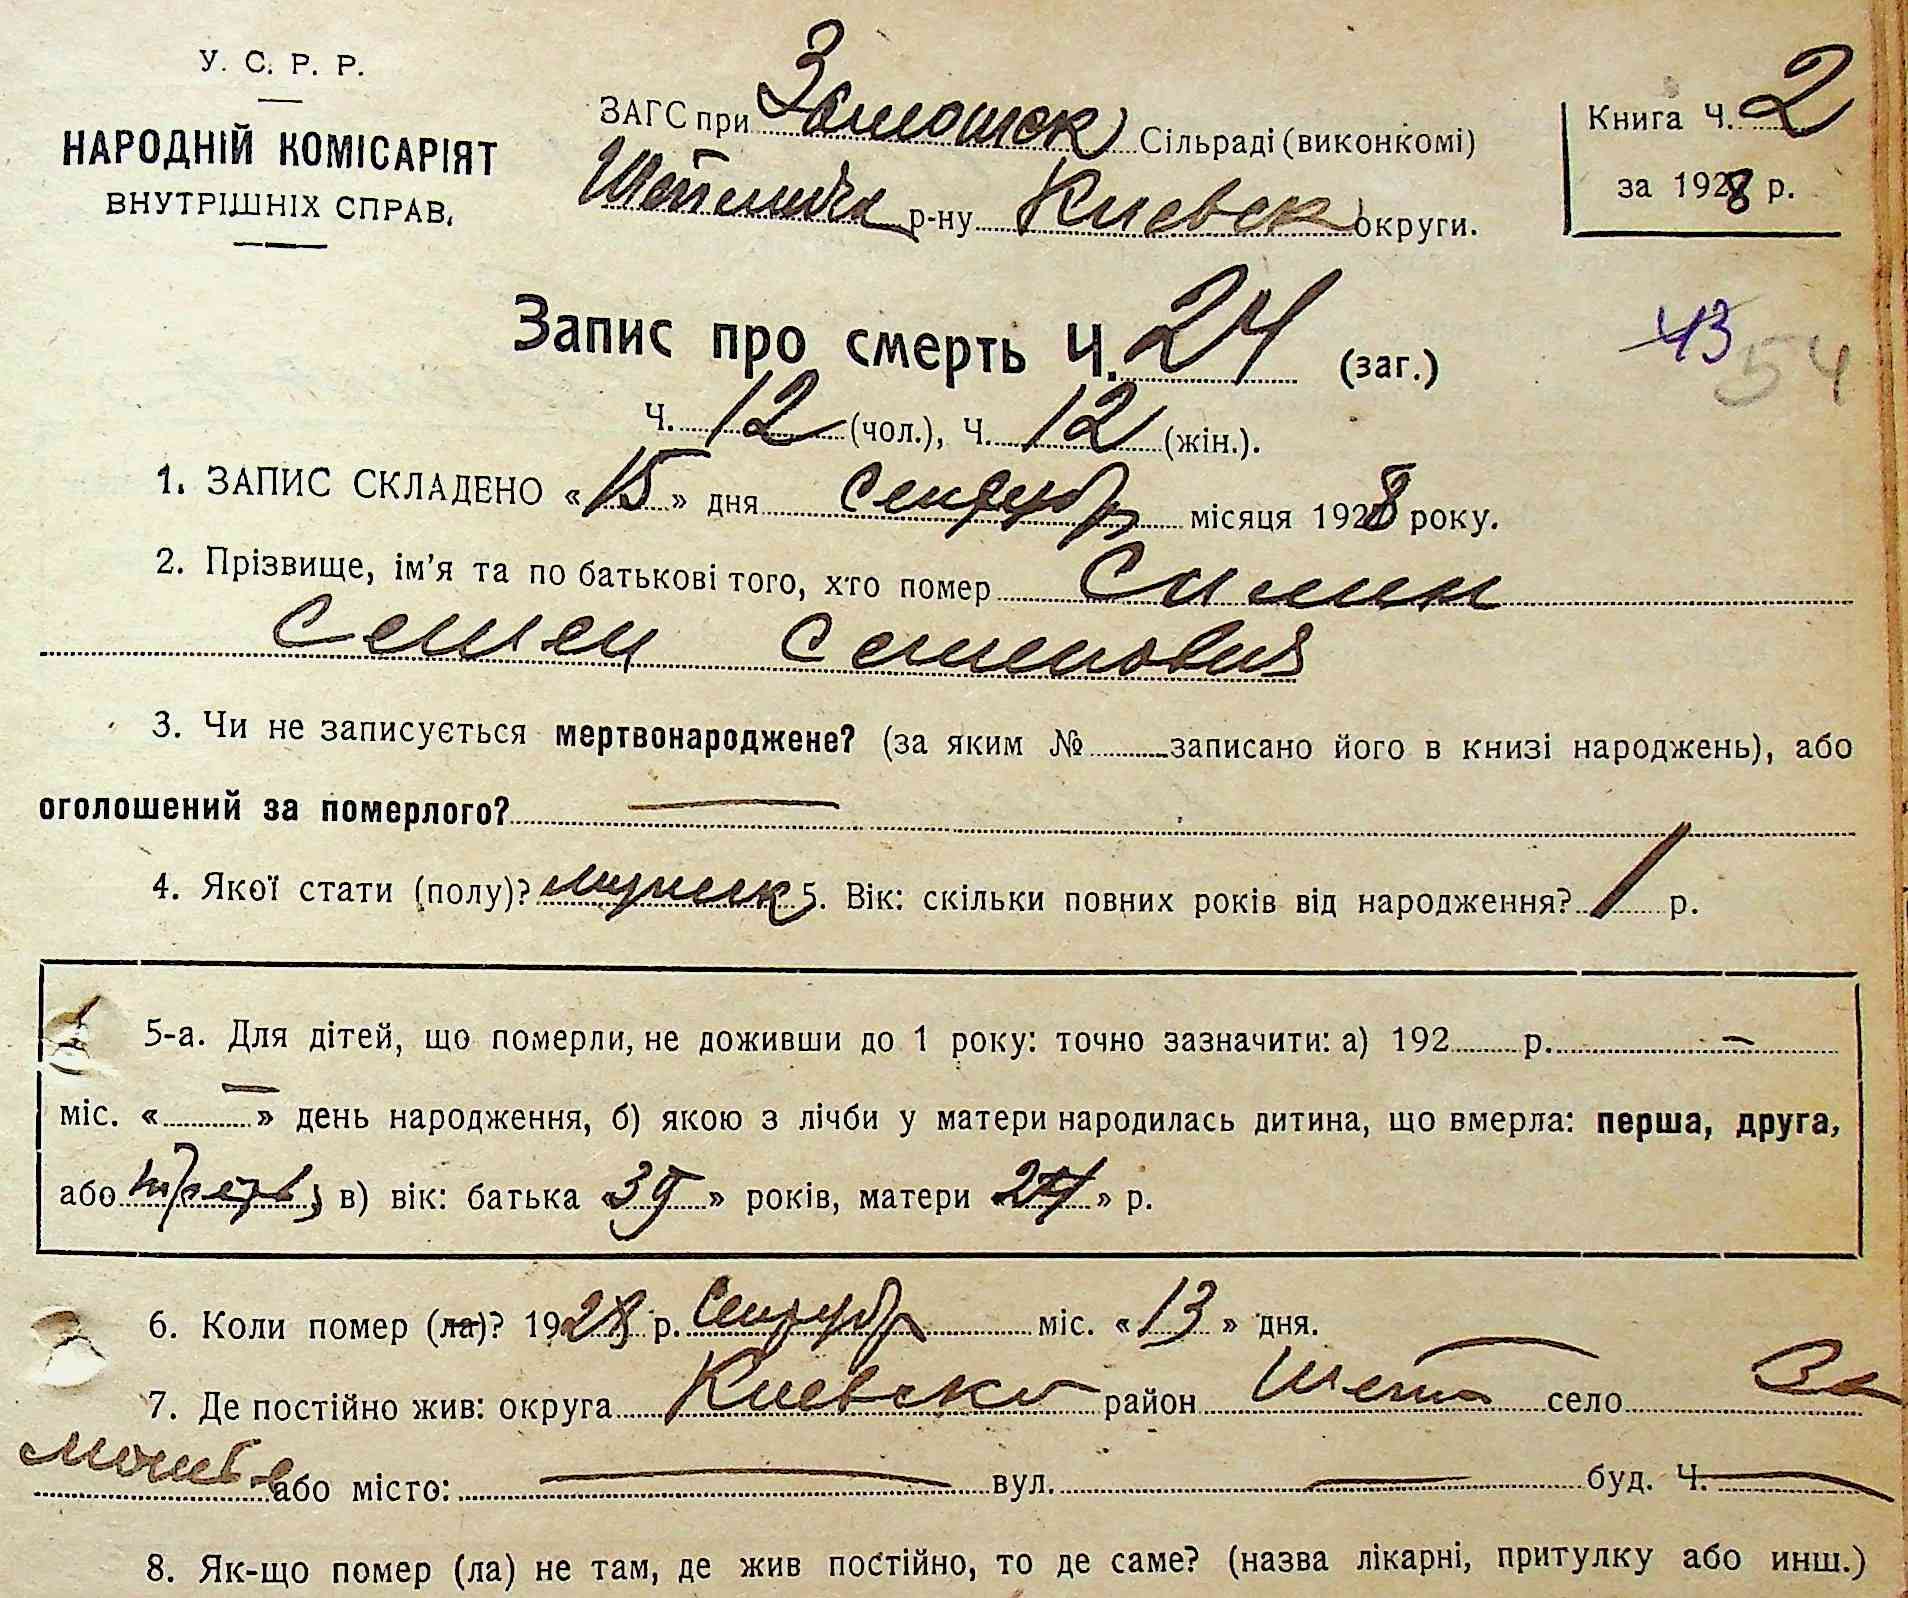 У. С. Р. Р.
НАРОДНІЙ КОМІСАРІЯТ
ВНУТРІШНІХ СПРАВ.
ЗАГС при Замошск Сільраді (виконкомі)
р-ну Киевск округи.
Книга Ч. 2
за 1928 р.
Запис про смерть Ч. 24 (заг.)
43 54
Ч. 12 (чол.), Ч. 12 (жін.).
1. ЗАПИС СКЛАДЕНО «15» дня Сентубр місяця 1928 року.
2. Прізвище, ім'я та по батькові того, хто помер Симин
Семен Семенович
3. Чи не записується мертвонароджене? (за яким № записано його в книзі народжень), або
оголошений за померлого? —
4. Якої стати (полу)? мужск 5. Вік: скільки повних років від народження? 1 р.
5-а. Для дітей, що померли, не доживши до 1 року: точно зазначити: а) 192 р. —
міс. « — » день народження, б) якою з лічби у матери народилась дитина, що вмерла: перша, друга,
або третя; в) вік: батька «35» років, матери «24» р.
6. Коли помер (ла)? 1928 р. Сентубр міс. «13» дня.
7. Де постійно жив: округа Киевско район Шеп село За
мошье або місто: — вул. — буд. Ч. —
8. Як-що помер (ла) не там, де жив постійно, то де саме? (назва лікарні, притулку або инш.)